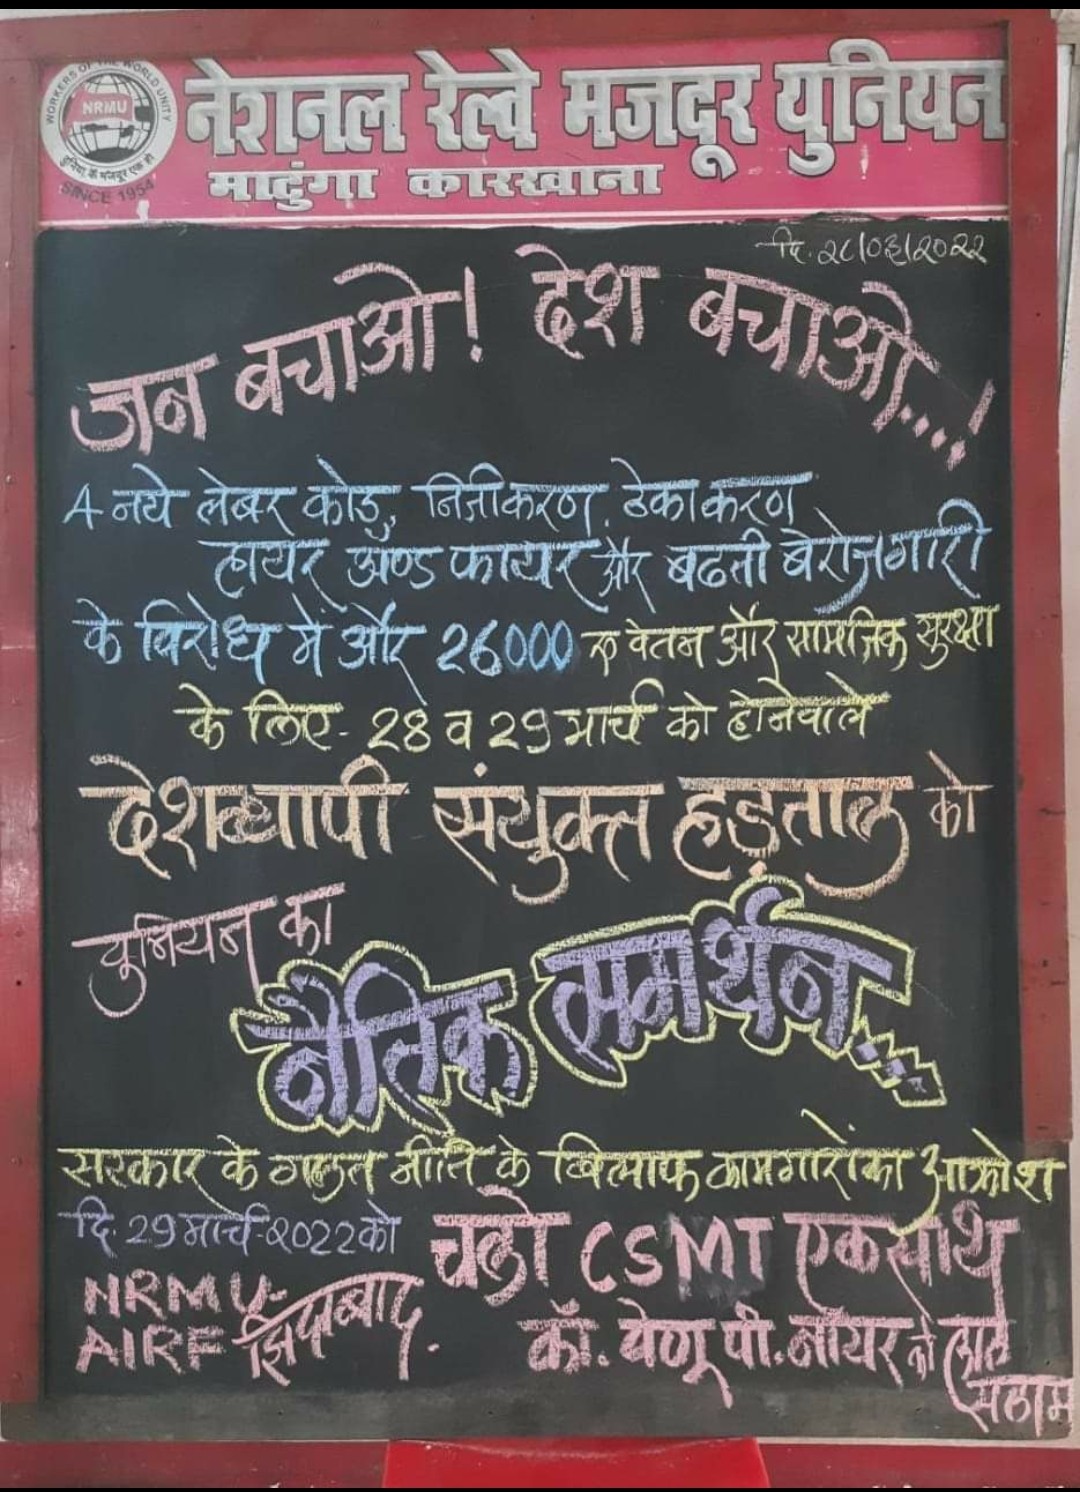 WORKERS OF THE WORLD UNITY
NRMU
दुनिया के मजदूर एक हो
SINCE 1954
नेशनल रेल्वे मजदूर युनियन
माटुंगा कारखाना
दि. २८/०३/२०२२
जन बचाओ! देश बचाओ...!
4 नये लेबर कोड, निजीकरण, ठेकाकरण,
हायर अँण्ड फायर और बढती बेरोजगारी
के विरोध में और 26000 रु वेतन और सामाजिक सुरक्षा
के लिए- 28 व 29 मार्च को होनेवाले
देशव्यापी संयुक्त हड़ताल को
युनियन का
नैतिक समर्थन....
सरकार के गलत नीति के खिलाफ कामगारोंका आक्रोश
दि. 29 मार्च-२०२२ को चलो CSMT एकसाथ
NRMU-
AIRF झिंदाबाद. कॉ. वेणू पी. नायर को लाल
सलाम